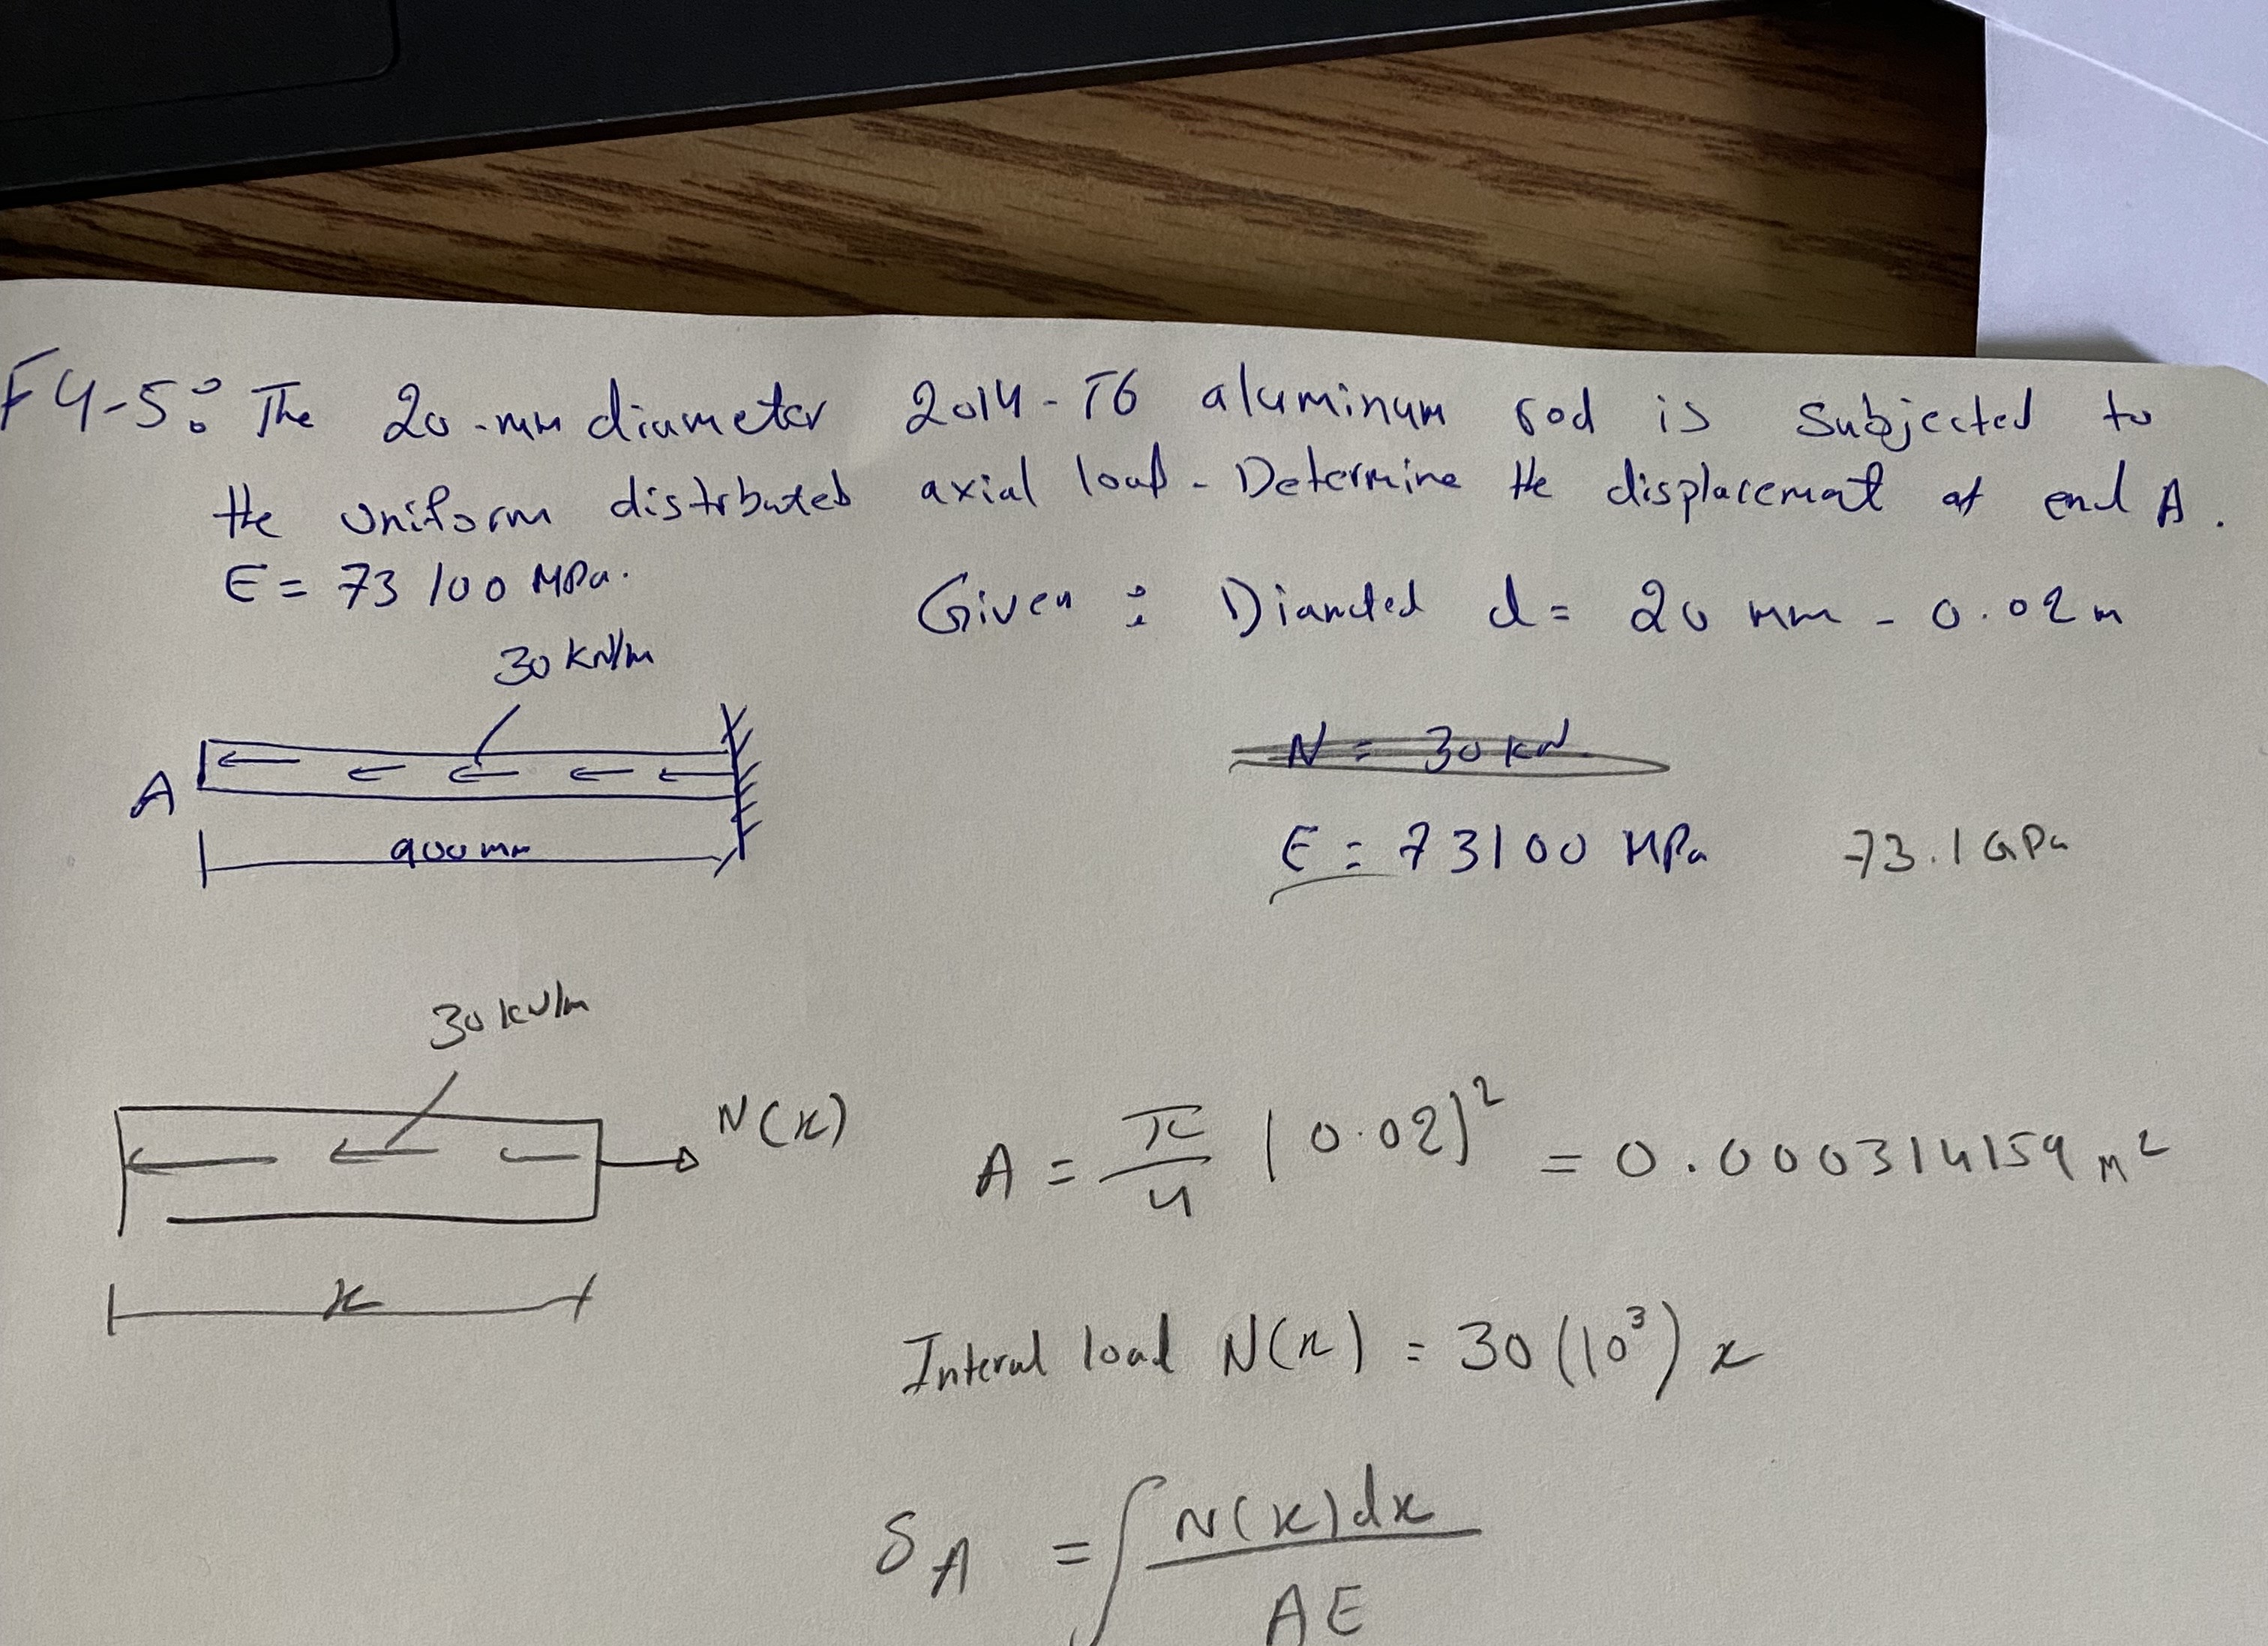 F4-5: The 20-mm diameter 2014-T6 aluminum rod is subjected to
the uniform distrbuted axial load. Determine the displacement at end A.
E = 73 100 MPa.
Given : Diameted d = 20 mm - 0.02 m
30 kN/m
N = 30 kN
A
900 mm
E = 73100 MPa 73.1 GPa
30 kN/m
N(x)
A = π/4 (0.02)² = 0.000314159 m²
x
Interal load N(x) = 30(10³) x
δA = ∫ N(x)dx / AE